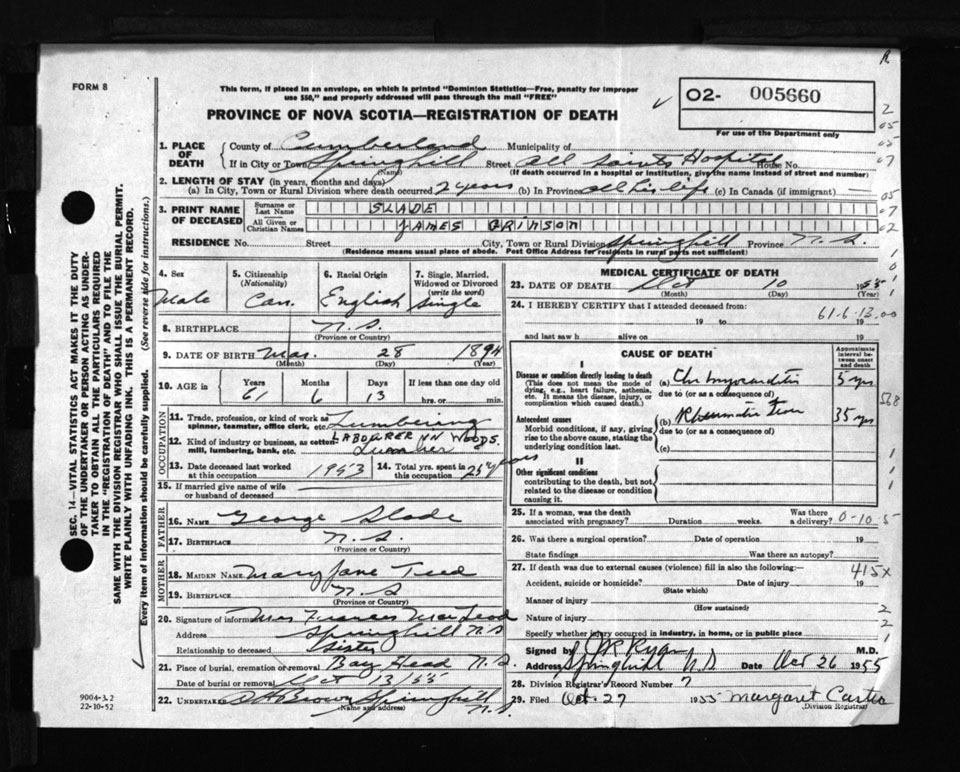 FORM 8
This form, if placed in an envelope, on which is printed "Dominion Statistics—Free, penalty for improper
use $50," and properly addressed will pass through the mail "FREE"
PROVINCE OF NOVA SCOTIA—REGISTRATION OF DEATH
O2- 005660
For use of the Department only
1. PLACE OF DEATH
County of Cumberland Municipality of
If in City or Town Springhill Street All Saints Hospital House No.
(Name) (If death occurred in a hospital or institution, give the name instead of street and number)
2. LENGTH OF STAY (in years, months and days)
(a) In City, Town or Rural Division where death occurred 2 years (b) In Province all his life (c) In Canada (if immigrant) —
3. PRINT NAME OF DECEASED
Surname or Last Name SLADE
All Given or Christian Names JAMES GRIMSON
RESIDENCE No. Street City, Town or Rural Division Springhill Province N.S.
(Residence means usual place of abode. Post Office Address for residents in rural parts not sufficient)
4. Sex Male
5. Citizenship (Nationality) Can.
6. Racial Origin English
7. Single, Married, Widowed or Divorced (write the word) Single
8. BIRTHPLACE N.S.
(Province or Country)
9. DATE OF BIRTH Mar. 28 1894
(Month) (Day) (Year)
10. AGE in Years 61 Months 6 Days 13 If less than one day old hrs. or min.
OCCUPATION
11. Trade, profession, or kind of work as spinner, teamster, office clerk, etc. Lumbering
LABOURER IN WOODS.
12. Kind of industry or business, as cotton-mill, lumbering, bank, etc. Lumber
13. Date deceased last worked at this occupation 1953
14. Total yrs. spent in this occupation 25 years
15. If married give name of wife or husband of deceased
FATHER
16. NAME George Slade
17. BIRTHPLACE N.S.
(Province or Country)
MOTHER
18. MAIDEN NAME Mary Jane
19. BIRTHPLACE N.S
(Province or Country)
20. Signature of informant Mrs Frances MacLeod
Address Springhill N.S
Relationship to deceased Sister
21. Place of burial, cremation or removal Bay Head N.S.
Date of burial or removal Oct 13/55
22. UNDERTAKER Brown Springhill N.S.
(Name and address)
MEDICAL CERTIFICATE OF DEATH
23. DATE OF DEATH Oct 10 1955
(Month) (Day) (Year)
24. I HEREBY CERTIFY that I attended deceased from:
61-6-13.00
19 to 19
and last saw h alive on 19
CAUSE OF DEATH
Approximate interval between onset and death
I
Disease or condition directly leading to death
(This does not mean the mode of dying, e.g., heart failure, asthenia, etc. It means the disease, injury, or complication which caused death.)
(a) Chr Myocarditis 5 yrs
due to (or as a consequence of)
Antecedent causes
Morbid conditions, if any, giving rise to the above cause, stating the underlying condition last.
(b) Rheumatic Fever 35 yrs
due to (or as a consequence of)
(c)
II
Other significant conditions
contributing to the death, but not related to the disease or condition causing it.
25. If a woman, was the death associated with pregnancy? Duration weeks. Was there a delivery? 0-10-5
26. Was there a surgical operation? Date of operation 19
State findings Was there an autopsy?
27. If death was due to external causes (violence) fill in also the following:— 415x
Accident, suicide or homicide? Date of injury 19
(State which)
Manner of injury
(How sustained)
Nature of injury
Specify whether injury occurred in industry, in home, or in public place
Signed by Ryan M.D.
Address Springhill N.S Date Oct 26 1955
28. Division Registrar's Record Number 7
29. Filed Oct. 27 1955 Margaret Carter
Division Registrar
SEC. 14—VITAL STATISTICS ACT MAKES IT THE DUTY
OF THE UNDERTAKER OR PERSON ACTING AS UNDER-
TAKER TO OBTAIN ALL THE PARTICULARS REQUIRED
IN THE "REGISTRATION OF DEATH" AND TO FILE THE
SAME WITH THE DIVISION REGISTRAR WHO SHALL ISSUE THE BURIAL PERMIT.
WRITE PLAINLY WITH UNFADING INK. THIS IS A PERMANENT RECORD.
Every item of information should be carefully supplied. (See reverse side for instructions.)
9004-3.2
22-10-52